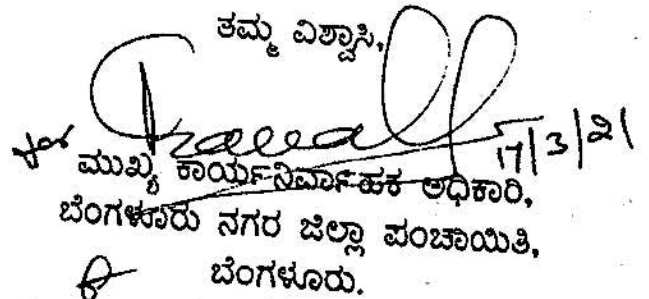 ತಮ್ಮ ವಿಶ್ವಾಸಿ,
for
17/3/21
ಮುಖ್ಯ ಕಾರ್ಯನಿರ್ವಾಹಕ ಅಧಿಕಾರಿ,
ಬೆಂಗಳೂರು ನಗರ ಜಿಲ್ಲಾ ಪಂಚಾಯಿತಿ,
ಬೆಂಗಳೂರು.